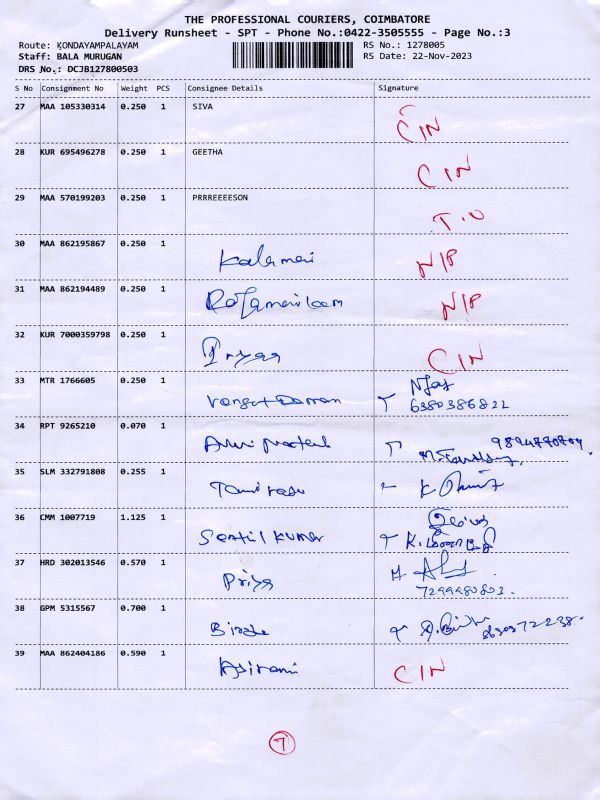 THE PROFESSIONAL COURIERS, COIMBATORE
Delivery Runsheet - SPT - Phone No.:0422-3505555 - Page No.:3
Route: KONDAYAMPALAYAM RS No.: 1278005
Staff: BALA MURUGAN RS Date: 22-Nov-2023
DRS No.: DCJB127800503
S No Consignment No Weight PCS Consignee Details Signature
27 MAA 105330314 0.250 1 SIVA CIN
28 KUR 695496278 0.250 1 GEETHA CIN
29 MAA 570199203 0.250 1 PRRREEEESON T.O
30 MAA 862195867 0.250 1 Kalamani N/P
31 MAA 862194489 0.250 1 N/P
32 KUR 7000359798 0.250 1 Priyaa CIN
33 MTR 1766605 0.250 1
6380386822
34 RPT 9265210 0.070 1
35 SLM 332791808 0.255 1 Tamil rasu K
36 CMM 1007719 1.125 1 Sentil kumar K.
37 HRD 302013546 0.570 1 Priya
7299980803.
38 GPM 5315567 0.700 1
39 MAA 862404186 0.590 1 Asirami CIN
7